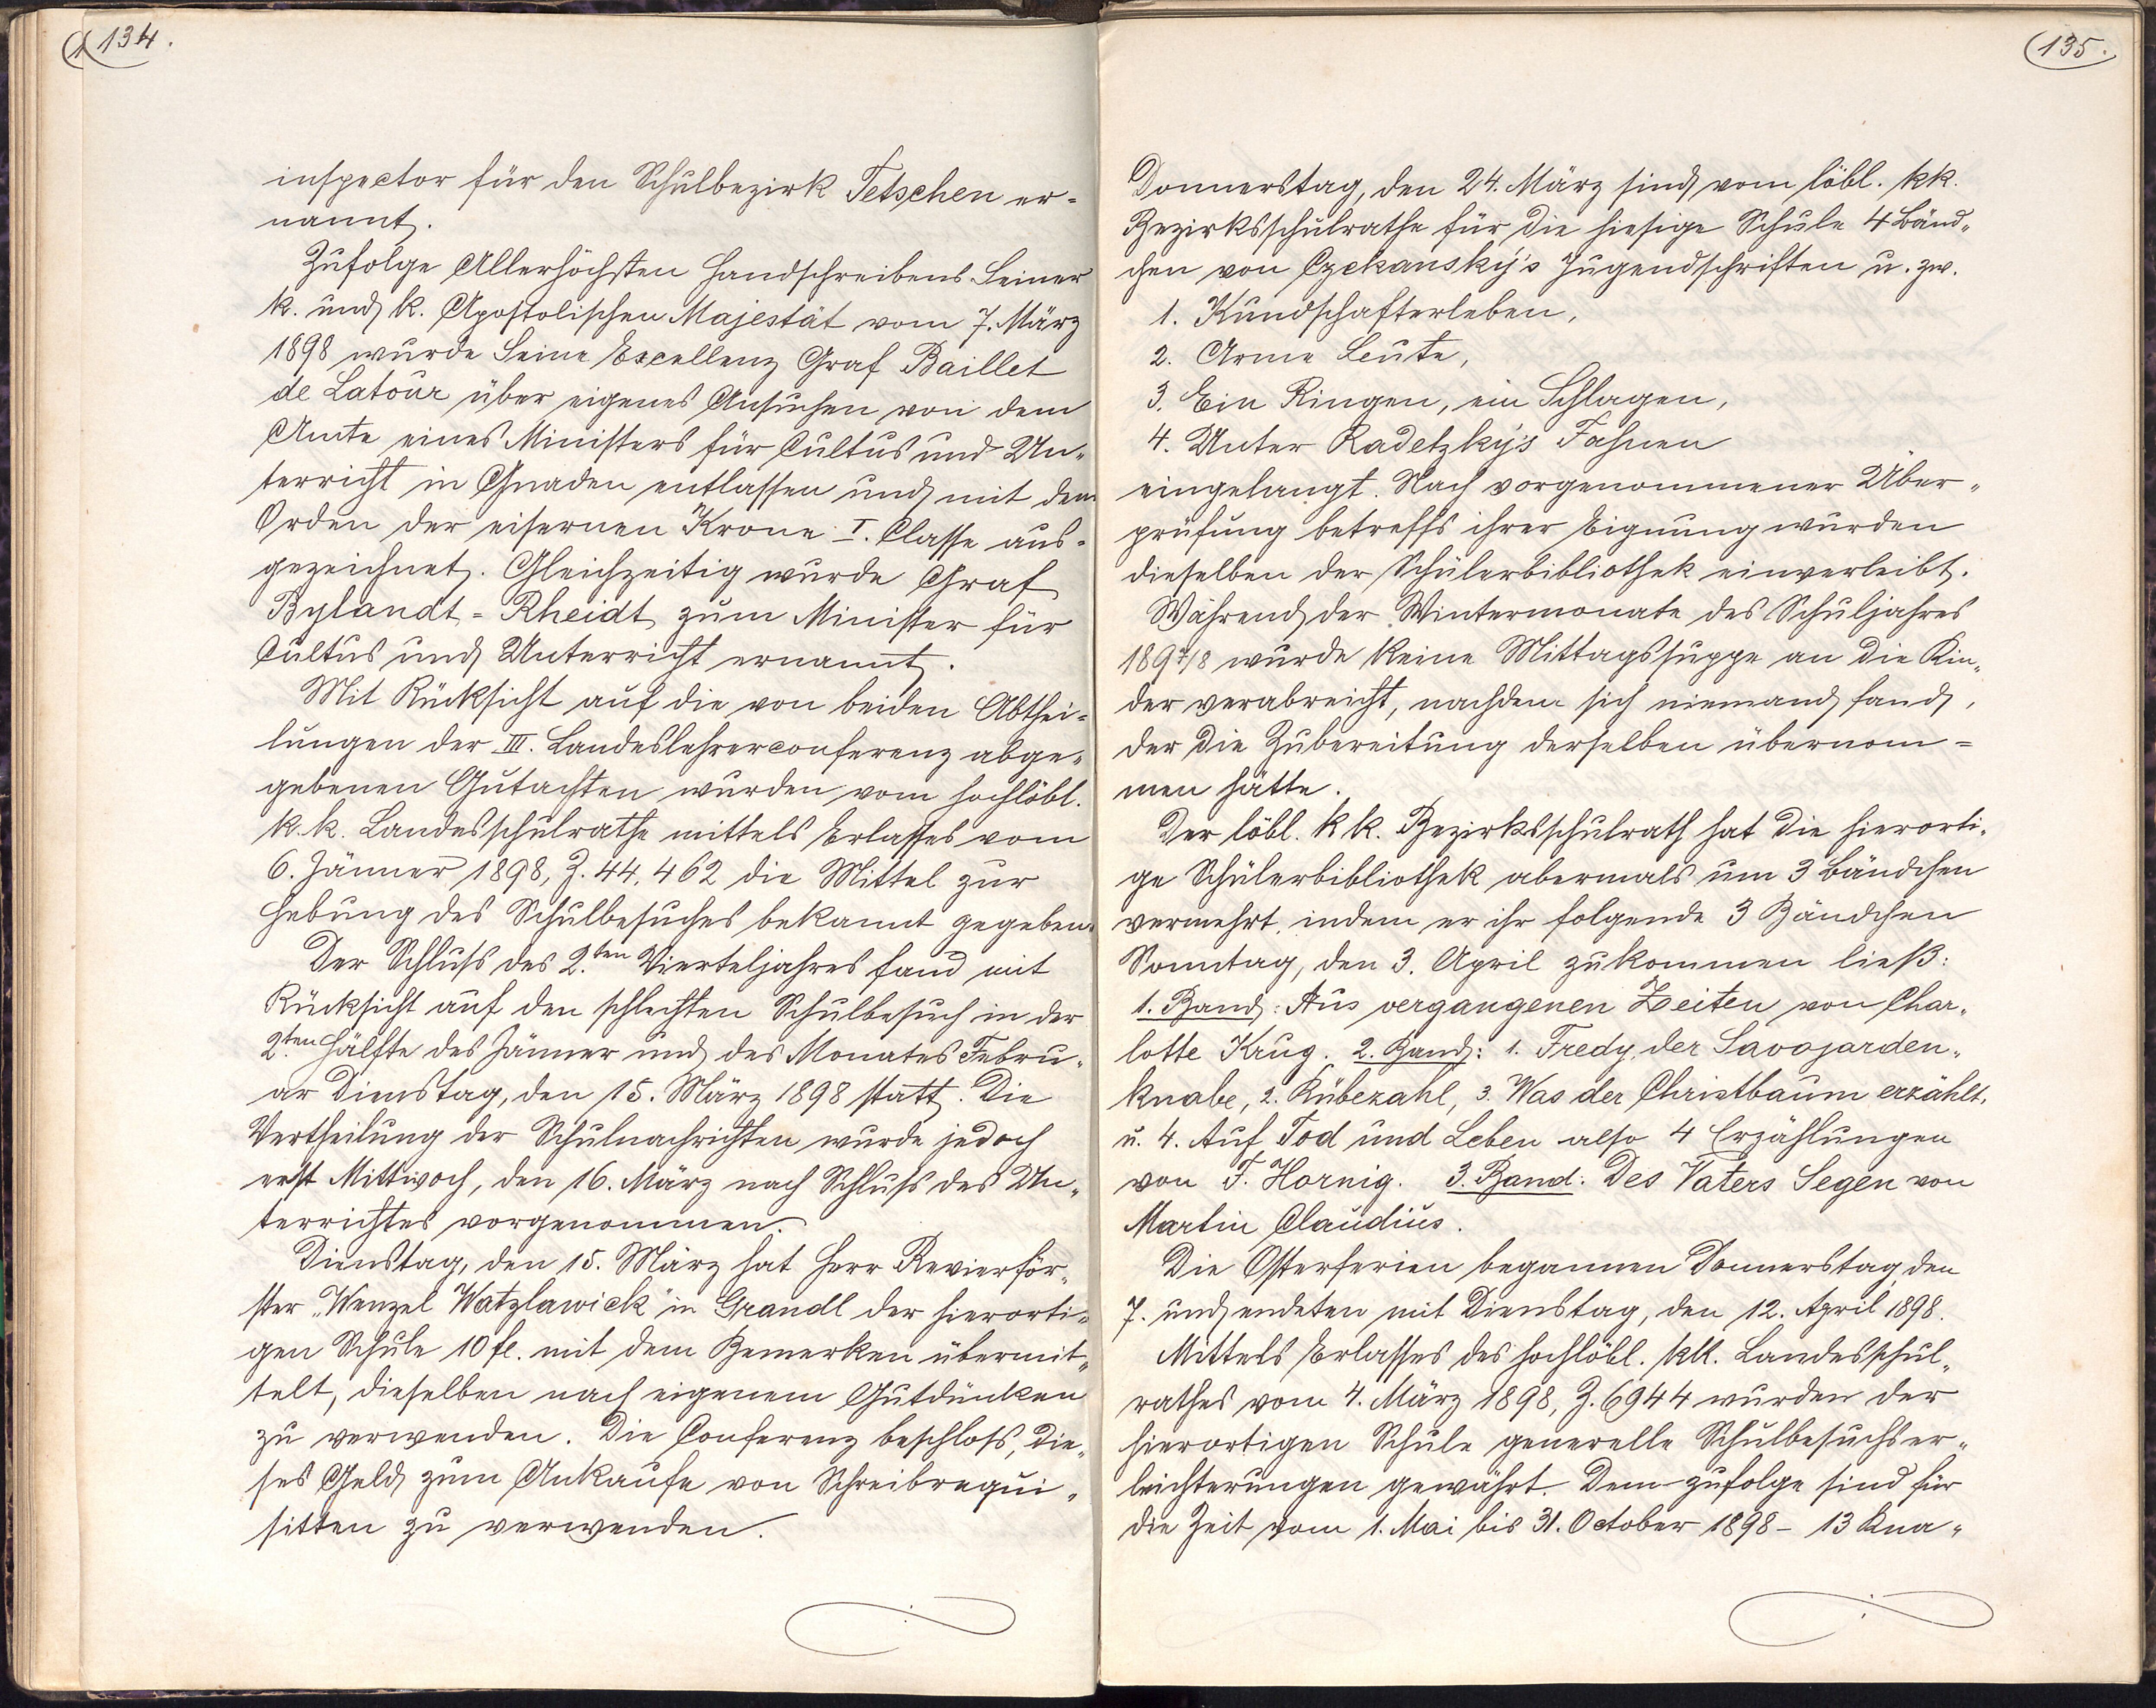 134.
inspector für den Schulbezirk Tetschen er=
nannt.
Zufolge Allerhöchsten Handschreibens Seiner
k. und k. Apostolischen Majestät vom 7. März
1898 wurde Seine Excellenz Graf Baillet
de Latour über eigenes Ansuchen von dem
Amte eines Ministers für Cultus und Un„
terricht in Gnaden entlassen und mit dem
Orden der eisernen Krone I. Classe aus=
gezeichnet. Gleichzeitig wurde Graf
Bylandt=Rheidt zum Minister für
Cultus und Unterricht ernannt.
Mit Rücksicht auf die von beiden Abthei=
lungen der III. Landeslehrerconferenz abge„
gebenen Gutachten wurden vom hochlöbl.
k. k. Landesschulrathe mittels Erlasses vom
6. Jänner 1898, Z. 44.462 die Mittel zur
Hebung des Schulbesuches bekannt gegeben.
Der Schluss des 2.ten Vierteljahres fand mit
Rücksicht auf den schlechten Schulbesuch in der
2.ten Hälfte des Jänner und des Monates Febru„
ar Dienstag, den 15. März 1898 statt. Die
Vertheilung der Schulnachrichten wurde jedoch
erst Mittwoch, den 16. März nach Schluss des Un„
terrichtes vorgenommen.
Dienstag, den 15. März hat Herr Revierför„
ster „Wenzel Watzlawick" in Grandl der hierorti=
gen Schule 10 fl. mit dem Bemerken übermit„
telt, dieselben nach eigenem Gutdünken
zu verwenden. Die Conferenz beschloss, die„
ses Geld zum Ankaufe von Schreibrequi„
sitten zu verwenden.
135.
Donnerstag, den 24. März sind vom löbl. kk.
Bezirksschulrathe für die hiesige Schule 4 Bänd„
chen von Czekansky's Jugendschriften u. zw.
1. Kundschafterleben,
2. Arme Leute,
3. Ein Ringen, ein Schlagen,
4. Unter Radetzky's Fahnen
eingelangt. Nach vorgenommener Über„
prüfung betreffs ihrer Eignung wurden
dieselben der Schülerbibliothek einverleibt.
Während der Wintermonate des Schuljahres
1897/8 wurde keine Mittagssuppe an die Kin„
der verabreicht, nachdem sich niemand fand,
der die Zubereitung derselben übernom=
men hätte.
Der löbl. k k. Bezirksschulrath hat die hierorti„
ge Schülerbibliothek abermals um 3 Bändchen
vermehrt, indem er ihr folgende 3 Bändchen
Sonntag, den 3. April zukommen ließ:
1. Band: Aus vergangenen Zeiten von Char„
lotte Krug. 2. Band: 1. Fredy, der Savojarden„
knabe, 2. Rübezahl, 3. Was der Christbaum erzählt,
u. 4. Auf Tod und Leben also 4 Erzählungen
von F. Hornig. 3. Band: Des Vaters Segen von
Martin Claudius.
Die Osterferien begannen Donnerstag, den
7. und endeten mit Dienstag, den 12. April 1898.
Mittels Erlasses des hochlöbl. kk. Landesschul„
rathes vom 4. März 1898, Z. 6944 wurden der
hierortigen Schule generelle Schulbesuchser„
leichterungen gewährt. Dem zufolge sind für
die Zeit vom 1. Mai bis 31. October 1898 – 13 Kna„